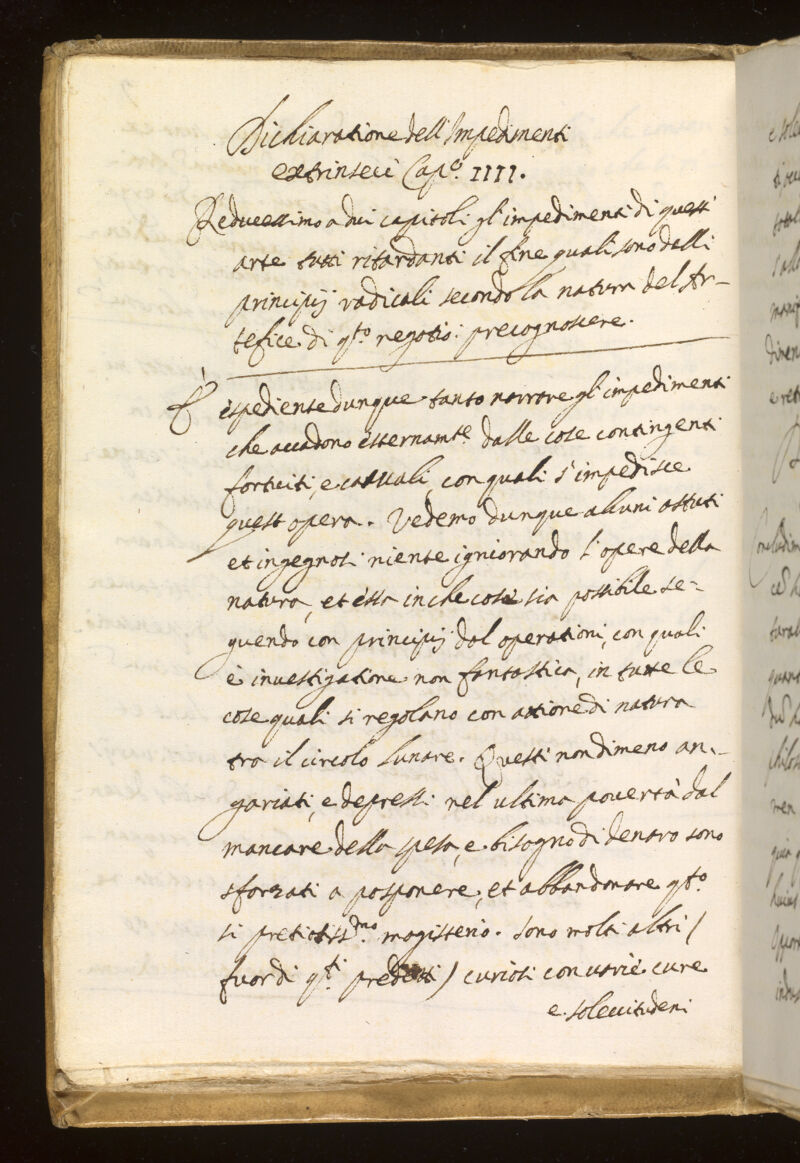 Dichiaratione dell'Impedimenti
extrinseci Cap.º IIII.
Reducessimo a dui capitoli gl'impedimenti di questi
arte tutti ritardanti il fine quali sono dalli
principij radicali secondo la natura del Ar-
tefice di q.to negotio: precognoscere.
È ispediente dunque tanto narrare gl'impedimenti
che accadono esternam.te dalle cose contingenti
fortuiti, e casuali, con quali s'impedisce
quest opera. Vedemo dunque alcuni astuti
et ingegnosi niente igniorando l'opere della
natura, et essa in che cose sia possibile se-
guendo con principij dal operationi, con quali
è investigatione non fantastica, in tutte le
cose quali si regolano con actione di natura
tra il circolo lunare. Questi nondimeno an-
gariati, e depressi nel ultima povertà dal
mancare della spesa, e bisogno di denaro sono
sforzati a posponere, et abbandonare q.to
si pretiosiss.mo magisterio. sono molti altri (
fuor di q.ti predetti) curiosi con varie cure
e solecitudeni